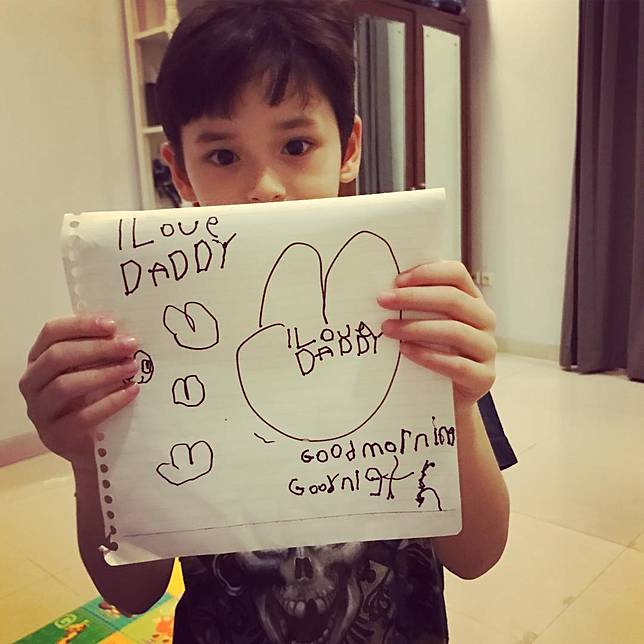 I Love
DADDY
I Love
DADDY
Goodmorning
Goodnight